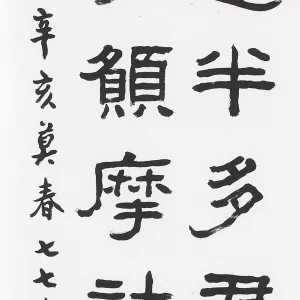 半多君
摩
辛亥莫春七七